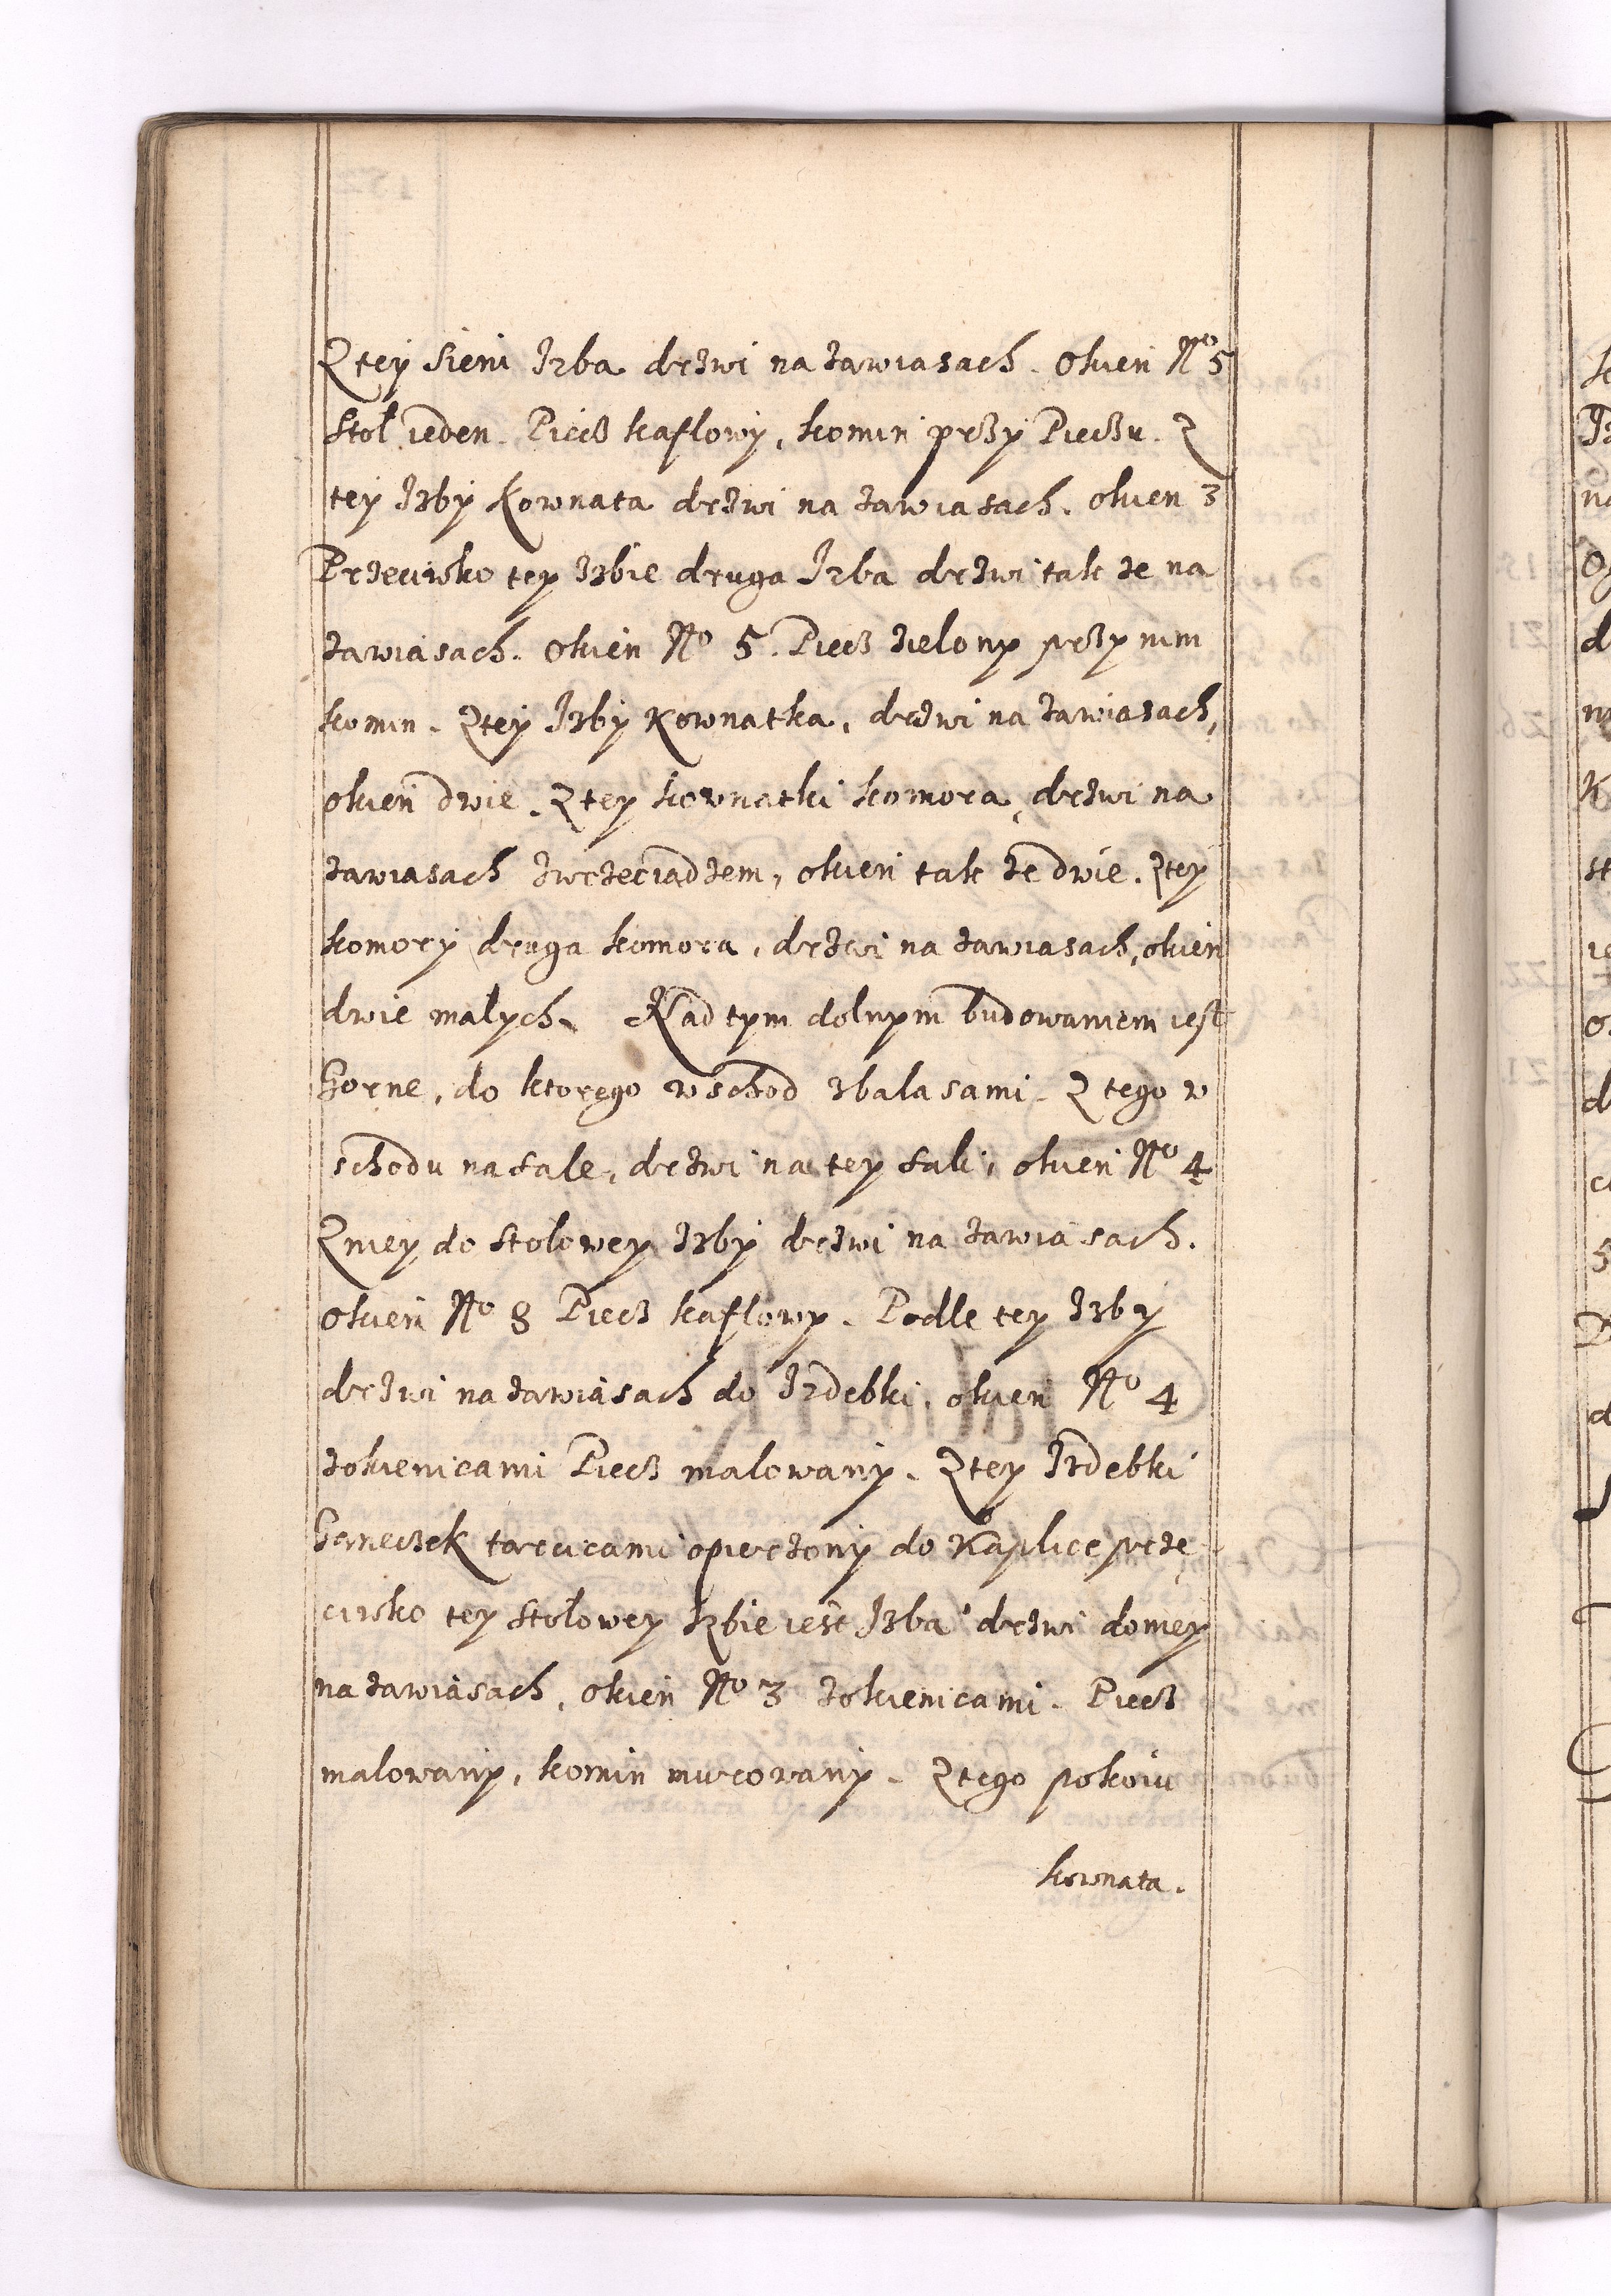 Z tey Sieni Izba drzwi na zawiasach. Okien No 5
Stoł ieden. Piecz kaflowy, komin przy Pieczu. Z
tey Izby Kownata drzwi na zawiasach. okien 3
Przeciwko tey Izbie druga Izba drzwi tak ze na
zawiasach. Okien No 5. Piecz zielony przy nim
komin. Z tey Izby Kownatka, drzwi na zawiasach,
okien dwie. Z tey kownatki komora, drzwi na
zawiasach zwrzeciadzem, okien tak ze dwie. Z tey
komory druga komora, drzwi na zawiasach, okien
dwie malych. Nad tym dolnym budowaniem iest
Gorne, do ktorego wschod zbalasami. Z tego w
schodu na sale, drzwi na tey sali, okien No 4
Z niey do stolowey Izby drzwi na zawiasach.
Okien No 8 Piecz kaflowy. Podle tey Izby
drzwi na zawiasach do Izdebki, okien No 4
zokienicami Piecz malowany. Z tey Izdebki
Ganeczek tarcicami opierzony do Kaplice prze
ciwko tey stolowey Izbie iest Izba drzwi do niey
na zawiasach, okien No 3 zokienicami. Piecz
malowany, komin murowany. Z tego pokoiu
kownata.